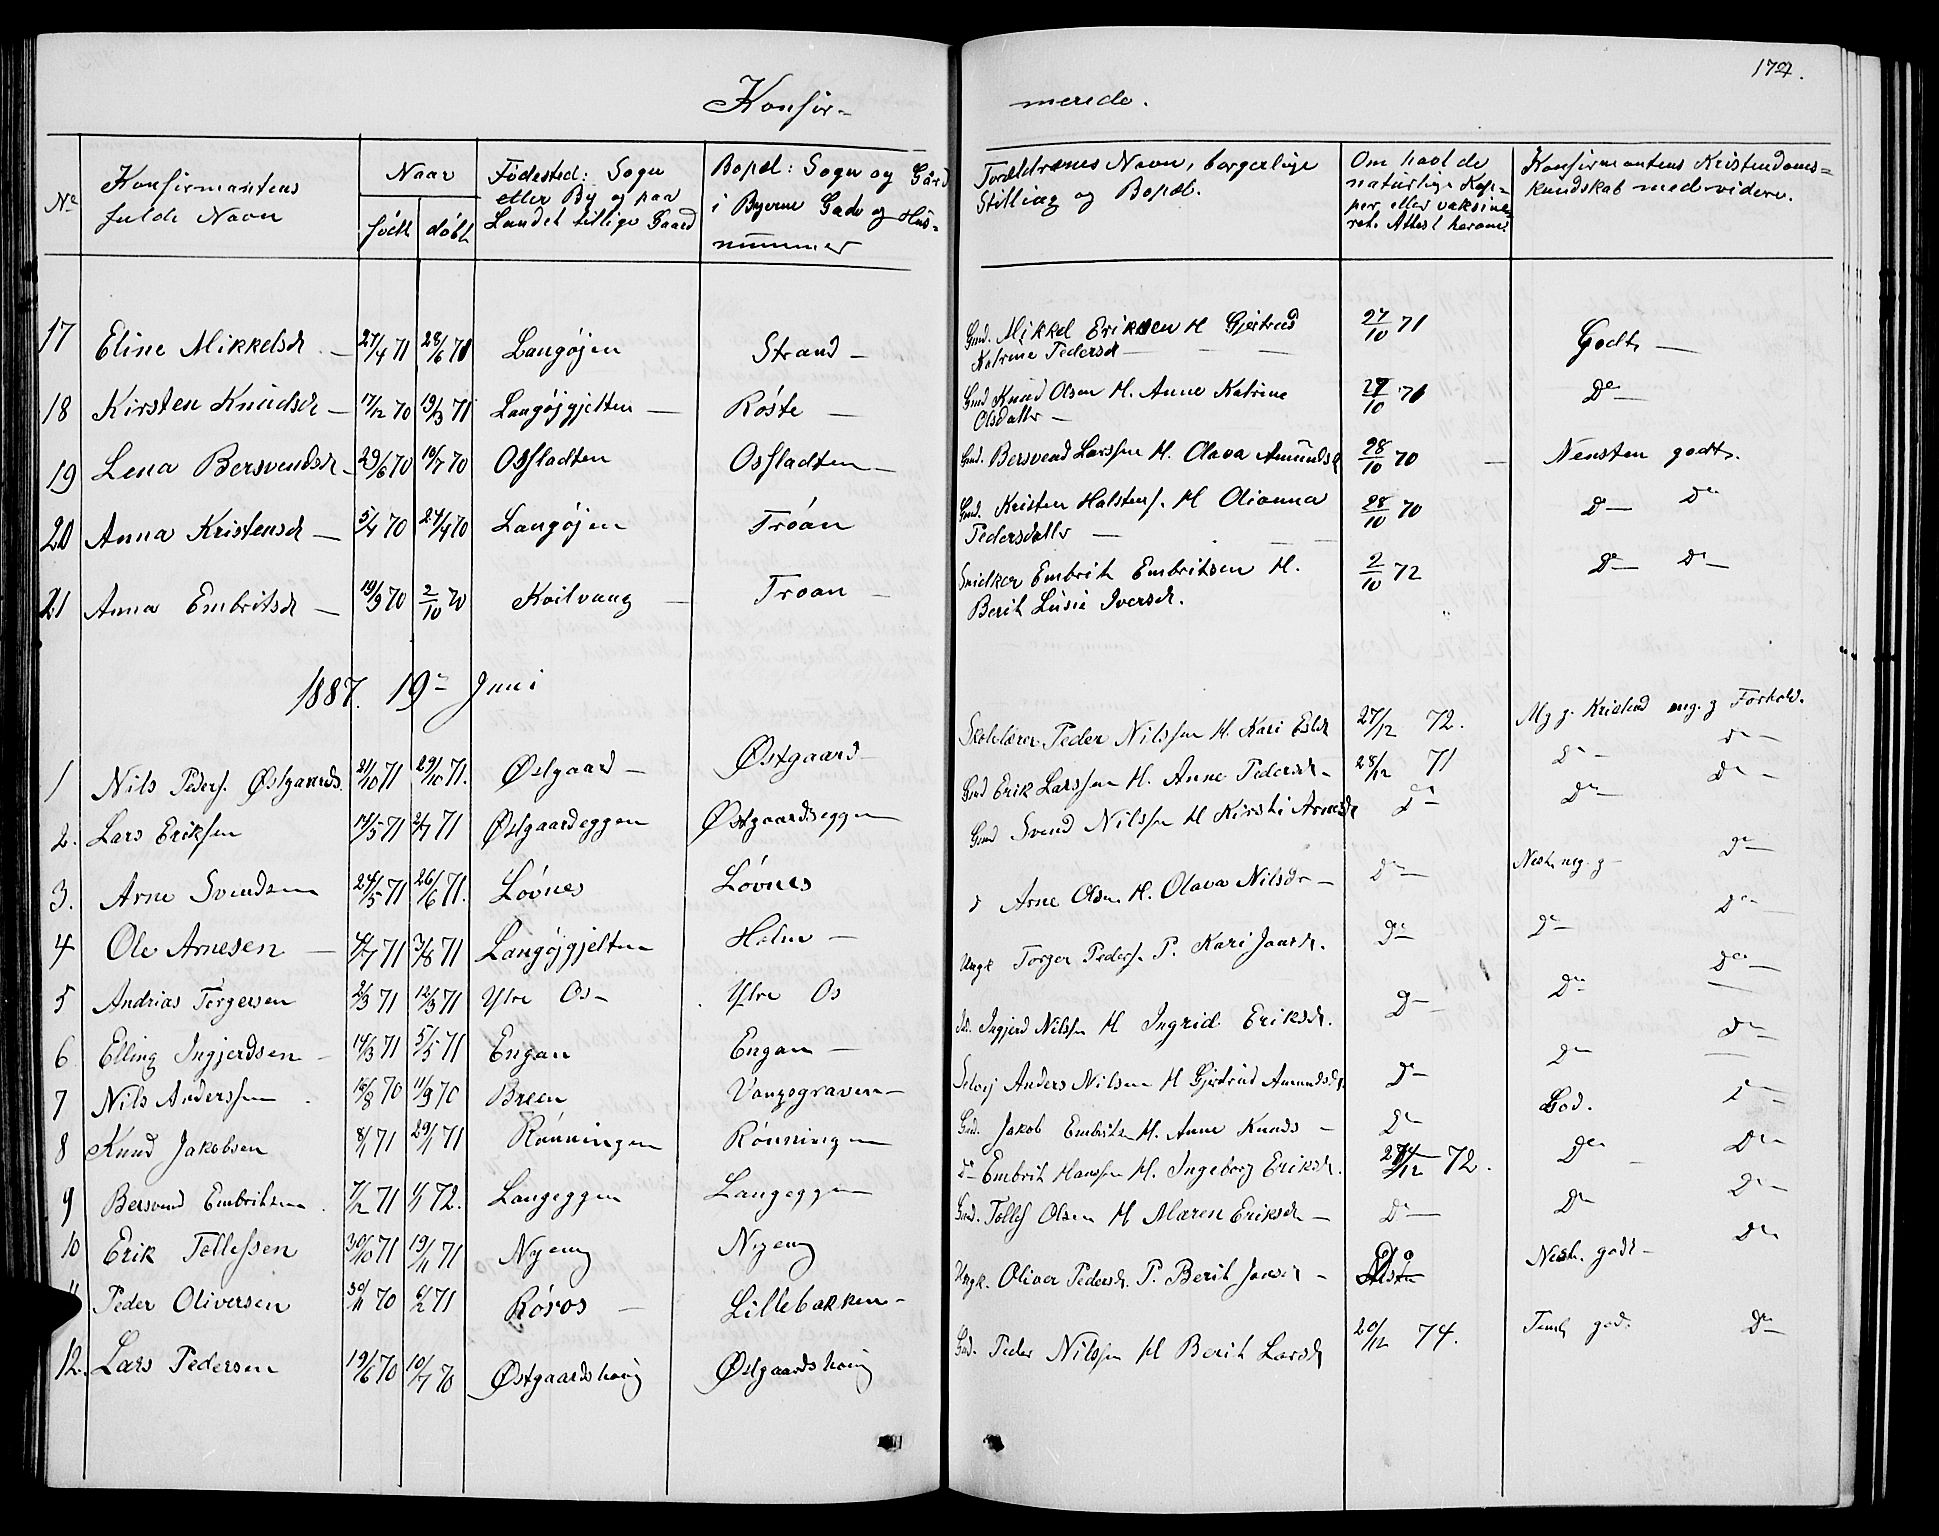 Konfir-
No
Konfirmantens
fulde Navn
Naar
født
døbt
Fødested: Sogn
eller By og paa
Landet tillige Gaard
Bopæl: Sogn og Gård
i Byerne Gade og Hus-
nummer
17 Eline Mikkelsdr. — 27/4 71 28/6 71 Langøjen Strand —
18 Kirsten Knudsdr — 17/12 70 19/3 71 Langøjgjelten — Røste —
19 Lena Bersvendsdr. 29/6 70 10/7 70 Osfladten Osfladten —
20 Anna Kristensdr — 5/4 70 24/4 70 Langøjen Trøan
21 Anna Embritsdr — 19/9 70 2/10 70 Koilvang — Trøan —
1887. 19de Juni
1 Nils Peders. Østgaards. 21/10 71 29/10 71. Østgaard — Østgaard —
2. Lars Eriksen 14/5 71 2/7 71 Østgaardeggen Østgaardseggen
3. Arne Svendsen 24/5 71 26/6 71. Løvnes Løvnes
4 Ole Arnesen — 4/7 71 3/8 71 Langøjgjelten Holm —
5 Andrias Torgersen 2/3 71 12/3 71 Ytre Os — Ytre Os
6 Elling Ingjerdsen — 14/3 71 5/5 71 Engan Engan —
7 Nils Anderssen 18/8 70 11/9 70 Breen Vangsgraven —
8 Knud Jakobsen 8/1 71 29/1 71 Rønningen Rønningen
9 Bersvend Embritsen 7/12 71 1/1 72. Langeggen Langeggen
10 Erik Tollefsen 30/10 71 19/11 71 Nyeng Nyeng
11 Peder Oliversen 30/11 70 6/2 71 Røros — Lillebakken —
12. Lars Pedersen 19/6 70 10/7 70 Østgaardshoug Østgaardshoug
merede.
Forældrenes Navn, borgerlige
Stilling og Bopæl.
Om havt de
naturlige Kop-
per eller vaksine-
ret. Attest herom.
Konfirmantens Kristendoms-
kundskab med videre.
Gmd. Mikkel Eriksen H Gjertrud 27/10 71 Godt —
Katrine Pedersdr —
Gmd Knud Olsen H. Anne Katrine 27/10 71 Do —
Olsdatter —
Gmd. Bersvend Larssen H. Olava Amundsdr 28/10 70 — Næsten godt.
Gmd. Kristen Halstens. H Olianna 28/10 70 Do — Do
Pedersdatter —
Snidker Embrit Embritsen H. 2/10 72 Do — Do —
Berit Lusie Iversdr.
Skolelærer Peder Nilssen H. Kari Esdr 27/12 72. Mg g. Kristend meg. g Forhold.
Gmd Erik Larssen H. Anne Pedersdr — 28/12 71 Do — Do —
Gmd Svend Nilssen H Kirsti Arnesdr Do — Do — Do —
d Arne Olsen H. Olava Nilsdr — Do — Nest. meg. g — Do —
Ungk Torger Peders. P. Kari Jonsdr. Do — Do — Do —
Ingjerd Nilssen H Ingrid Eriksdr. Do — Do Do —
Selvej Anders Nilsen H Gjertrud Amundsdr Do — Do Do —
Gmd. Jakob Embritsen H. Anne Knuds — Do God. Do —
Do Embrit Hanssen H. Ingeborg Eriksdr. 27/12 72. Do Do —
Gmd. Tollef Olsen H Maren Eriksdr — Do — Do Do —
Ungk. Oliver Pedersdr. P. Berit Jonsdr — Nest. godt — Do
Gmd. Peder Nilssen H Berit Larsdr 20/12 74. god. Do —